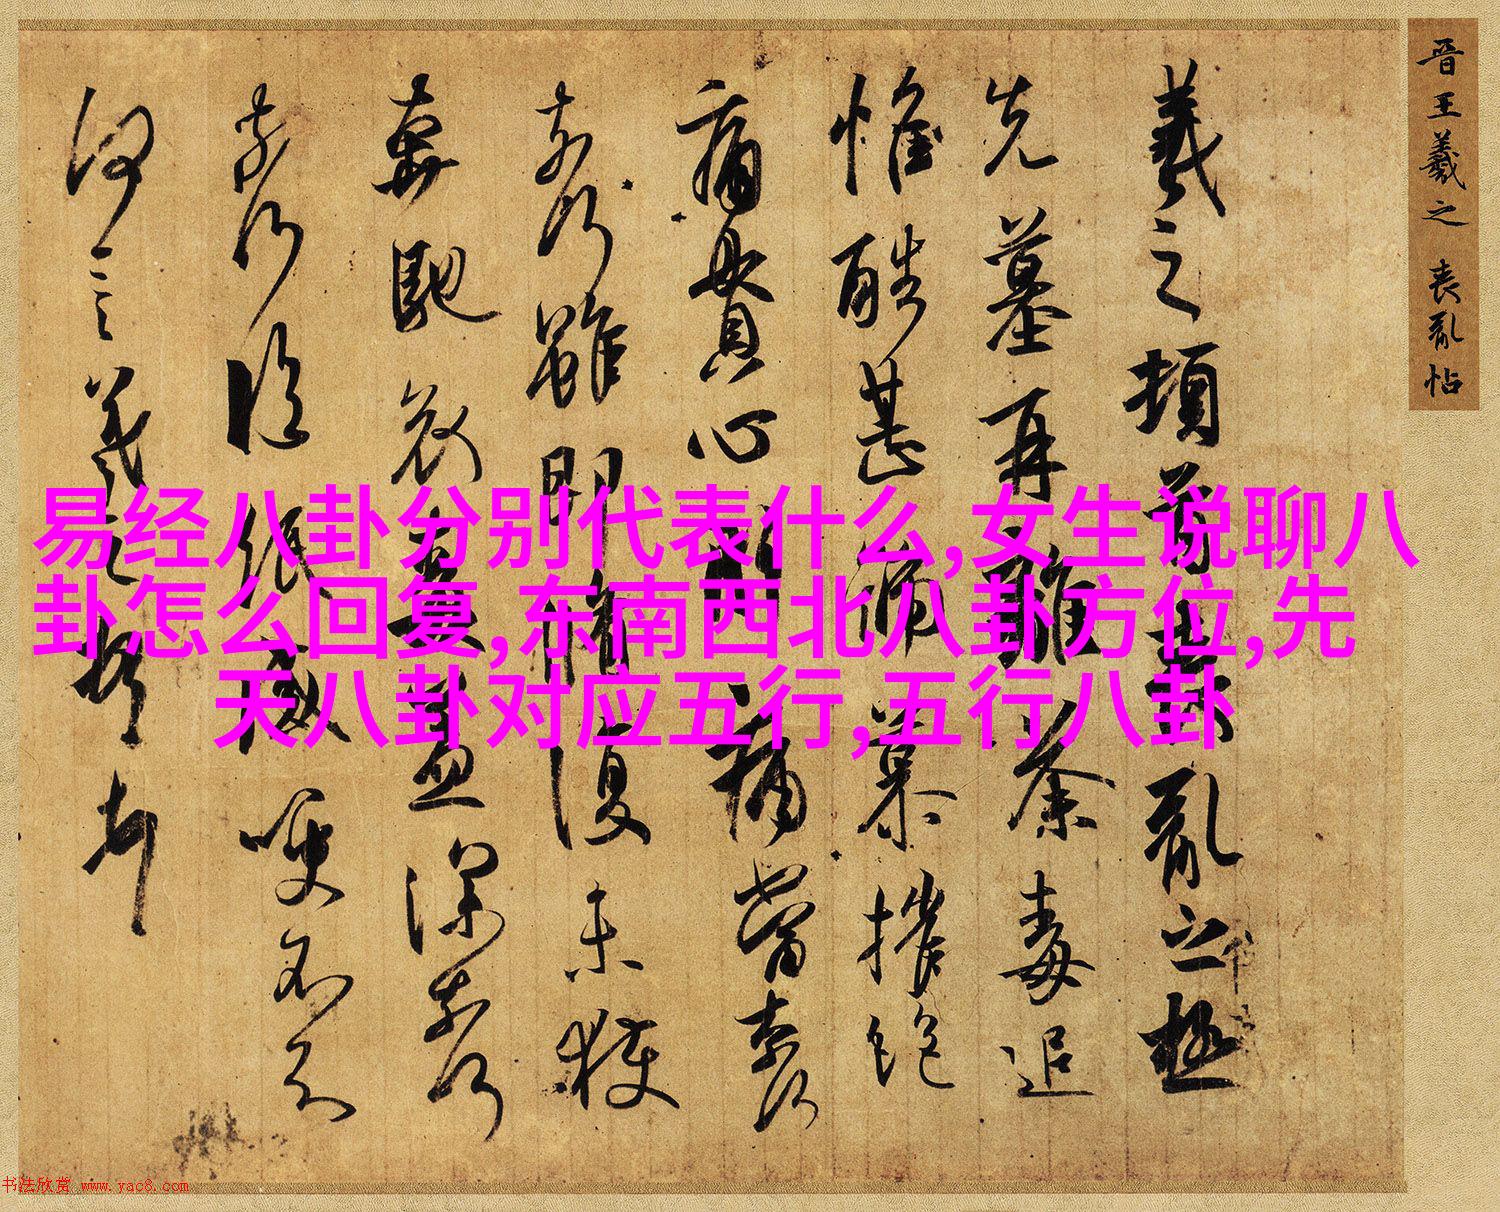 晋王羲之 丧乱帖
羲之顿首丧乱之极
先墓再离荼毒追
惟酷甚号慕摧绝
痛贯心肝痛当奈何
奈何虽即修复未获
奔驰哀毒益深奈何
奈何临纸感哽不知
何言羲之顿首
易经八卦分别代表什么,女生说聊八
卦怎么回复,东南西北八卦方位,先
天八卦对应五行,五行八卦
书法欣赏 www.yac8.com